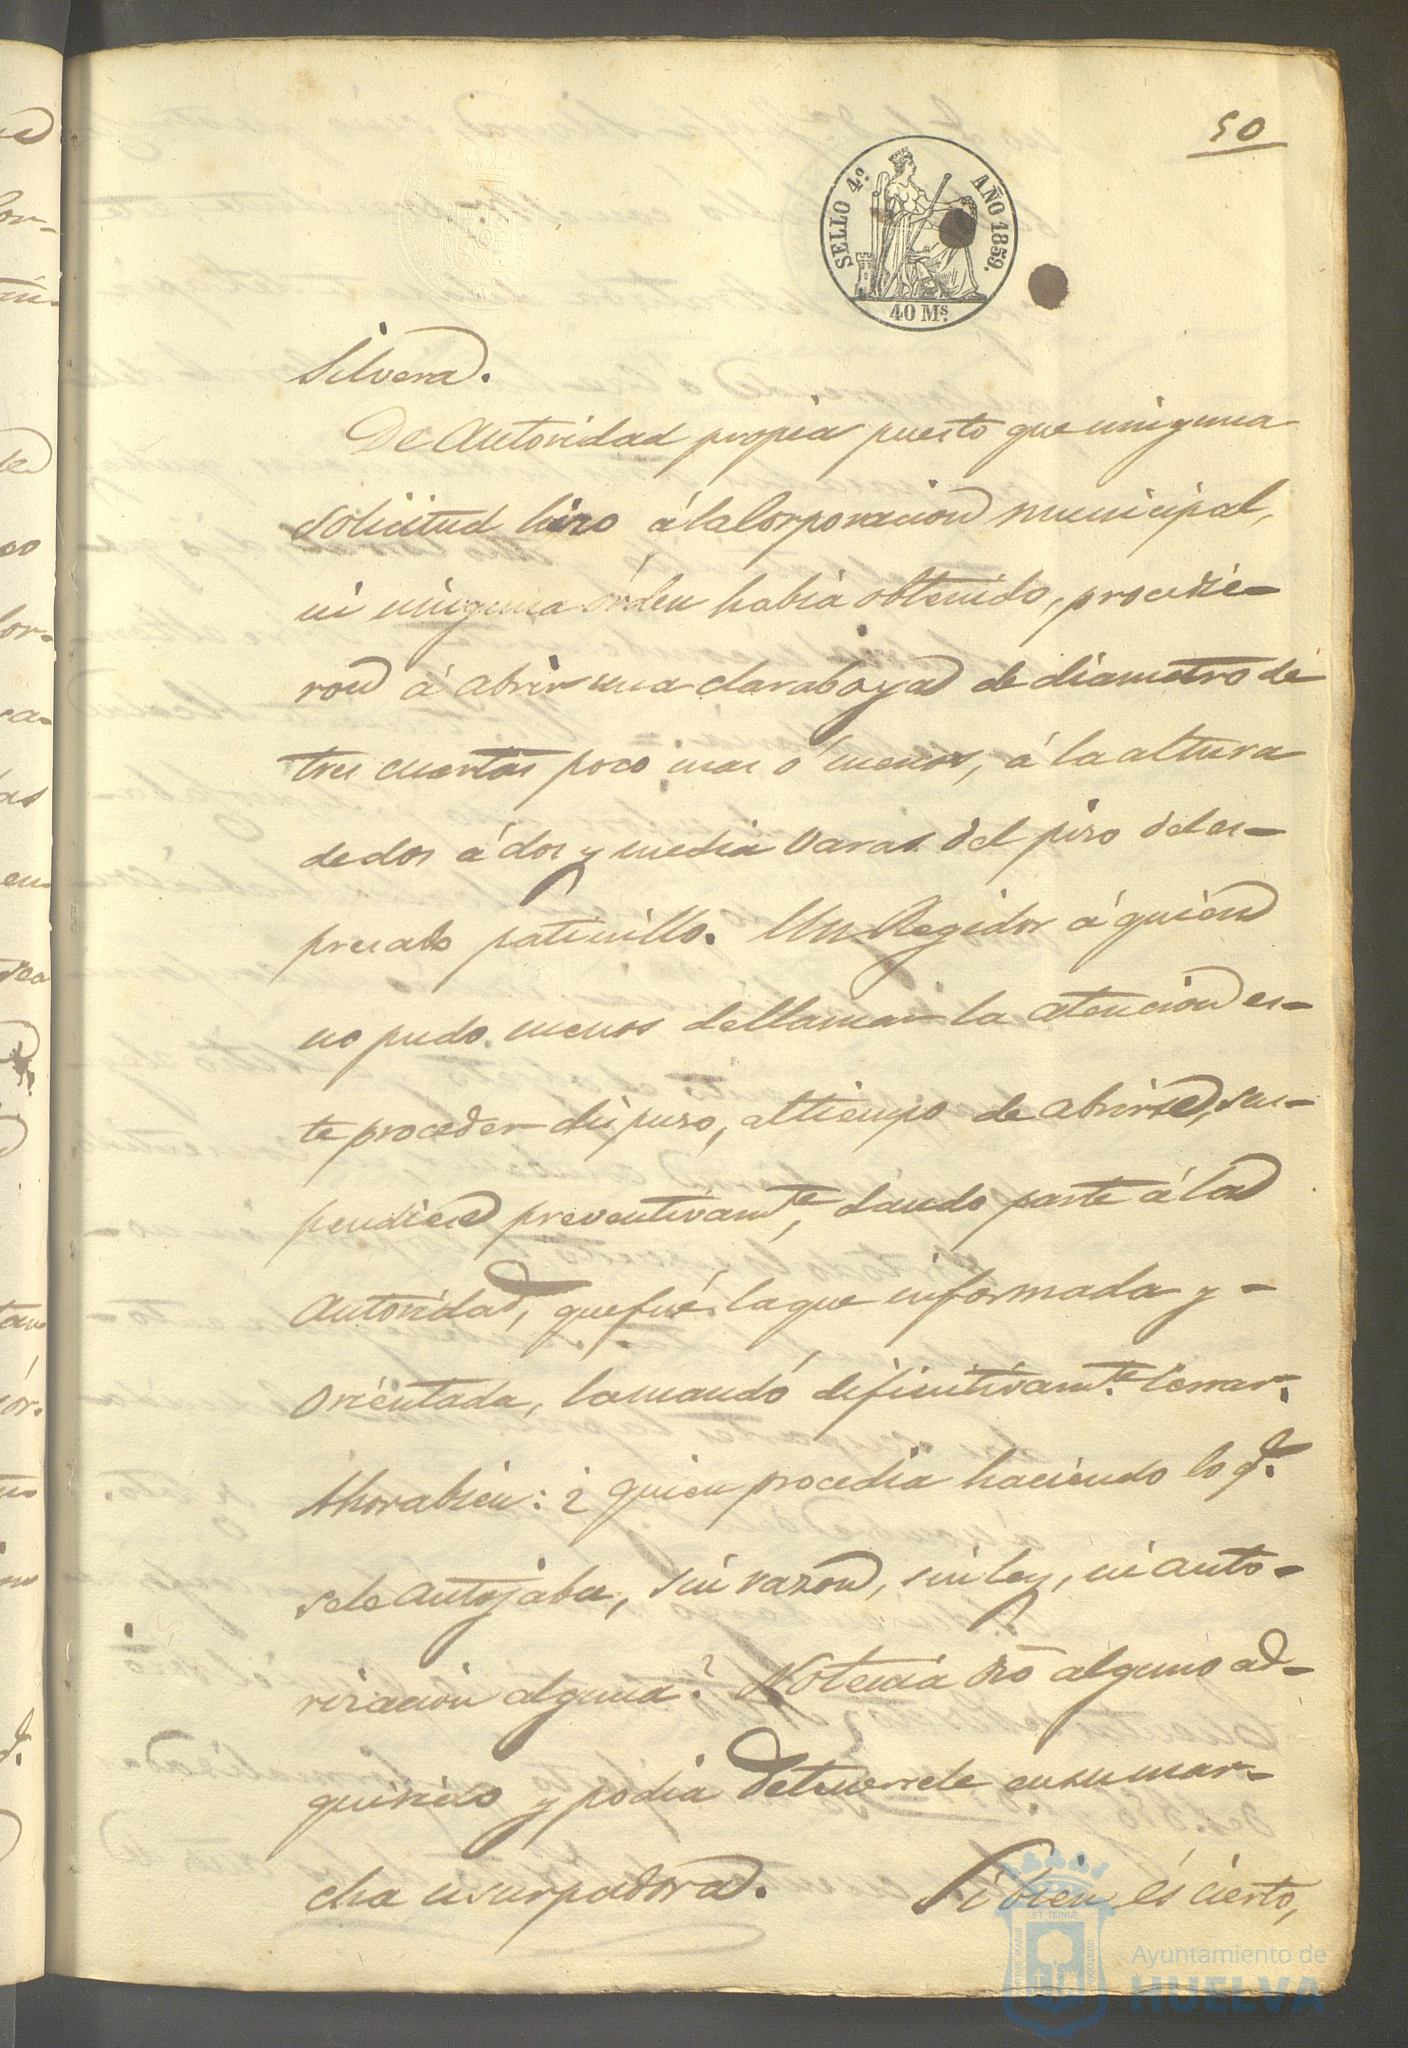 50
SELLO 4º. AÑO 1859.
40 Ms.
Silvera.
De Autoridad propia puesto que ninguna
solicitud hizo á la Corporacion municipal,
ni ninguna órden habia obtenido, procedie-
ron á abrir una claraboya de diametro de
tres cuartas poco mas ó menos, á la altura
de dos á dos y media varas del piso del es-
presado patinillo. Un Regidor á quien
no pudo menos de llamar la atencion es-
te proceder dispuso, al tiempo de abrirse, sus-
pendiese preventivamte, dando parte á la
Autoridad, que fué la que informada y -
orientada, la mandó definitivamte. cerrar.
Ahora bien: ¿quien procedia haciendo lo q.
se le antojaba, sin razon, sin ley, ni auto-
rizacion alguna? No tenia dro alguno ad-
quirido y podia detenersele en su mar-
cha usurpadora. Si bien és cierto,
Ayuntamiento de
HUELVA